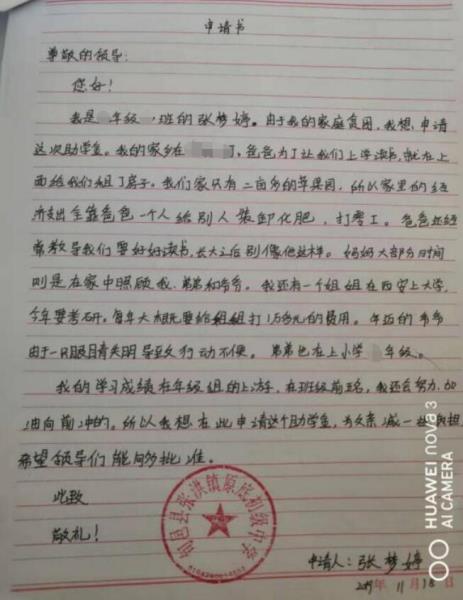 申请书
尊敬的领导:
您好!
我是 年级 班的张梦婷。由于我的家庭贫困,我想申请
这次助学金。我的家乡在 ,爸爸为了让我们上学读书,就在上
面给我们租了房子。我们家只有二亩多的苹果园,所以家里的经
济支出全靠爸爸一个人给别人装卸化肥,打零工。爸爸还经
常教导我们要好好读书,长大之后别像他这样。妈妈大部分时间
则是在家中照顾我、弟弟和爷爷。我还有一个姐姐在西安上大学,
今年要考研,每年大概要给姐姐打1万多元的费用。年迈的爷爷
由于一只眼睛失明导致行动不便。弟弟也在上小学 年级。
我的学习成绩在年级组的上游,在班级前五名,我还会努力,加
油向前冲的。所以我想在此申请这个助学金,为父亲减一些负担
希望领导们能够批准。
此致
敬礼!
旬邑县张洪镇原底初级中学
申请人:张梦婷
2019年11月18日
HUAWEI nova 3
AI CAMERA